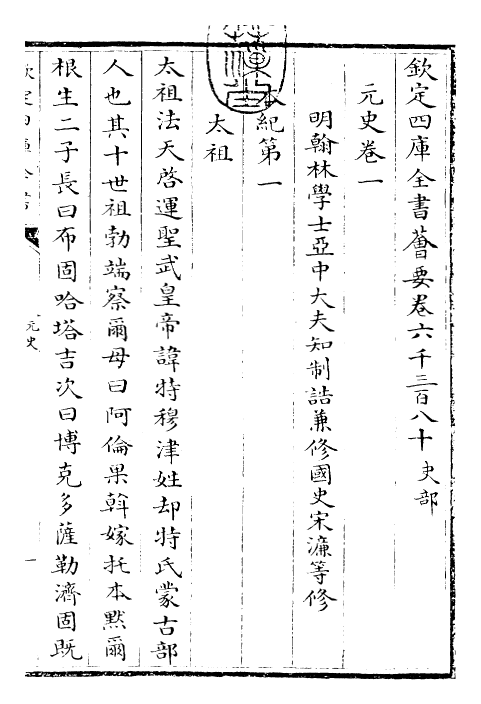 欽定四庫全書薈要卷六千三百八十 史部
元史卷一
明翰林學士亞中大夫知制誥兼修國史宋濂等修
本紀第一
太祖
太祖法天啓運聖武皇帝諱特穆津姓却特氏蒙古部
人也其十世祖勃端察爾母曰阿倫果斡嫁托本默爾
根生二子長曰布固哈塔吉次曰博克多薩勒濟固既
欽定四庫全書
元史
一